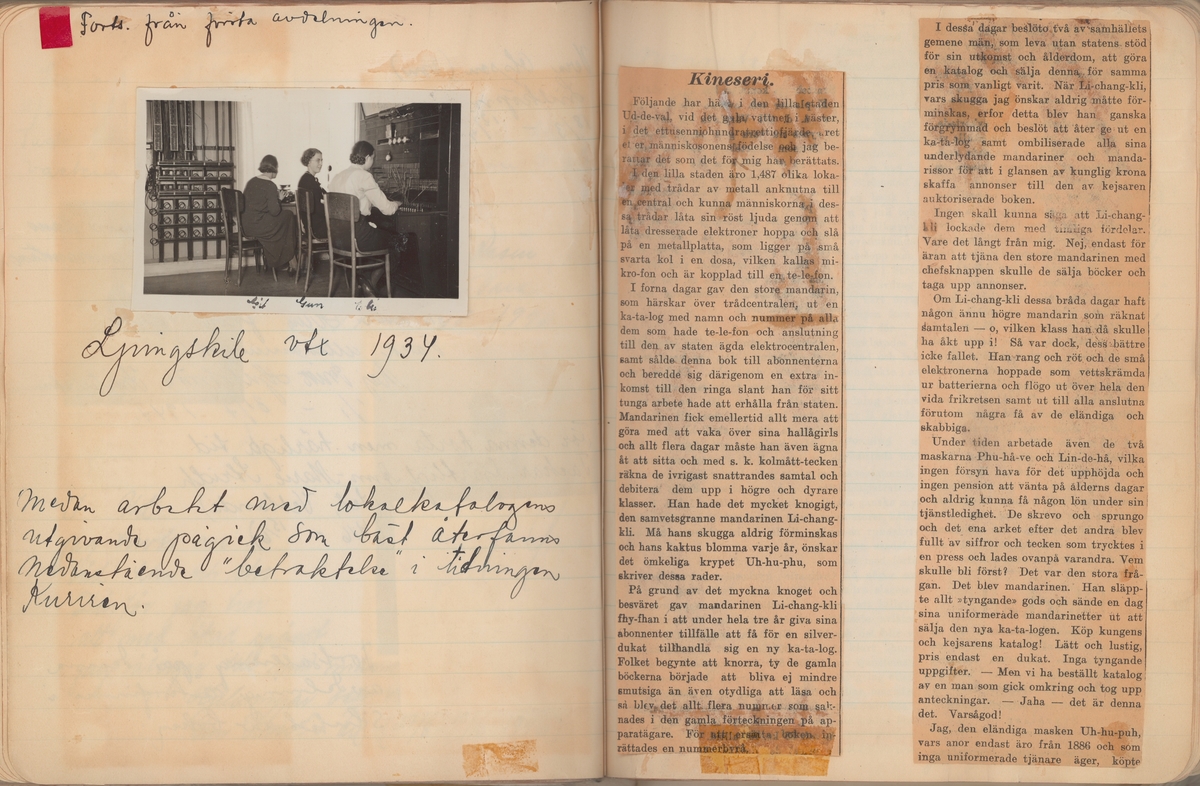 Forts. från första avdelningen.
Gun
Ebba
Ljungskile vtx 1934.
Medan arbetet med lokalkatalogens
utgivande pågick som bäst återfanns
nedanstående "betraktelse" i tidningen
Kuriren.
Kineseri.
Följande har hänt i den lilla staden
Ud-de-val, vid det gula vattnet i väster,
i det ettusenniohundratrettiofjärde året
efter människosonens födelse och jag be-
rättar det som det för mig har berättats.
I den lilla staden äro 1,487 olika loka-
ler med trådar av metall anknutna till
en central och kunna människorna i des-
sa trådar låta sin röst ljuda genom att
låta dresserade elektroner hoppa och slå
på en metallplatta, som ligger på små
svarta kol i en dosa, vilken kallas mi-
kro-fon och är kopplad till en te-le-fon.
I forna dagar gav den store mandarin,
som härskar över trådcentralen, ut en
ka-ta-log med namn och nummer på alla
dem som hade te-le-fon och anslutning
till den av staten ägda elektrocentralen,
samt sålde denna bok till abonnenterna
och beredde sig därigenom en extra in-
komst till den ringa slant han för sitt
tunga arbete hade att erhålla från staten.
Mandarinen fick emellertid allt mera att
göra med att vaka över sina hallågirls
och allt flera dagar måste han även ägna
åt att sitta och med s. k. kolmått-tecken
räkna de ivrigast snattrandes samtal och
debitera dem upp i högre och dyrare
klasser. Han hade det mycket knogigt,
den samvetsgranne mandarinen Li-chang-
kli. Må hans skugga aldrig förminskas
och hans kaktus blomma varje år, önskar
det ömkeliga krypet Uh-hu-phu, som
skriver dessa rader.
På grund av det myckna knoget och
besväret gav mandarinen Li-chang-kli
fhy-fhan i att under hela tre år giva sina
abonnenter tillfälle att få för en silver-
dukat tillhandla sig en ny ka-ta-log.
Folket begynte att knorra, ty de gamla
böckerna började att bliva ej mindre
smutsiga än även otydliga att läsa och
så blev det allt flera nummer som sak-
nades i den gamla förteckningen på ap-
paratägare. För att ersätta boken in-
rättades en nummerbyrå.
I dessa dagar beslöto två av samhällets
gemene män, som leva utan statens stöd
för sin utkomst och ålderdom, att göra
en katalog och sälja denna för samma
pris som vanligt varit. När Li-chang-kli,
vars skugga jag önskar aldrig måtte för-
minskas, erfor detta blev han ganska
förgrymmad och beslöt att åter ge ut en
ka-ta-log samt ombiliserade alla sina
underlydande mandariner och manda-
rissor för att i glansen av kunglig krona
skaffa annonser till den av kejsaren
auktoriserade boken.
Ingen skall kunna säga att Li-chang-
kli lockade dem med timliga fördelar.
Vare det långt från mig. Nej, endast för
äran att tjäna den store mandarinen med
chefsknappen skulle de sälja böcker och
taga upp annonser.
Om Li-chang-kli dessa bråda dagar haft
någon ännu högre mandarin som räknat
samtalen — o, vilken klass han då skulle
ha åkt upp i! Så var dock, dess bättre
icke fallet. Han rang och röt och de små
elektronerna hoppade som vettskrämda
ur batterierna och flögo ut över hela den
vida frikretsen samt ut till alla anslutna
förutom några få av de eländiga och
skabbiga.
Under tiden arbetade även de två
maskarna Phu-hå-ve och Lin-de-hå, vilka
ingen försyn hava för det upphöjda och
ingen pension att vänta på ålderns dagar
och aldrig kunna få någon lön under sin
tjänstledighet. De skrevo och sprungo
och det ena arket efter det andra blev
fullt av siffror och tecken som trycktes i
en press och lades ovanpå varandra. Vem
skulle bli först? Det var den stora frå-
gan. Det blev mandarinen. Han släpp-
te allt »tyngande» gods och sände en dag
sina uniformerade mandarinetter ut att
sälja den nya ka-ta-logen. Köp kungens
och kejsarens katalog! Lätt och lustig,
pris endast en dukat. Inga tyngande
uppgifter. — Men vi ha beställt katalog
av en man som gick omkring och tog upp
anteckningar. — Jaha — det är denna
det. Varsågod!
Jag, den eländiga masken Uh-hu-puh,
vars anor endast äro från 1886 och som
inga uniformerade tjänare äger, köpte